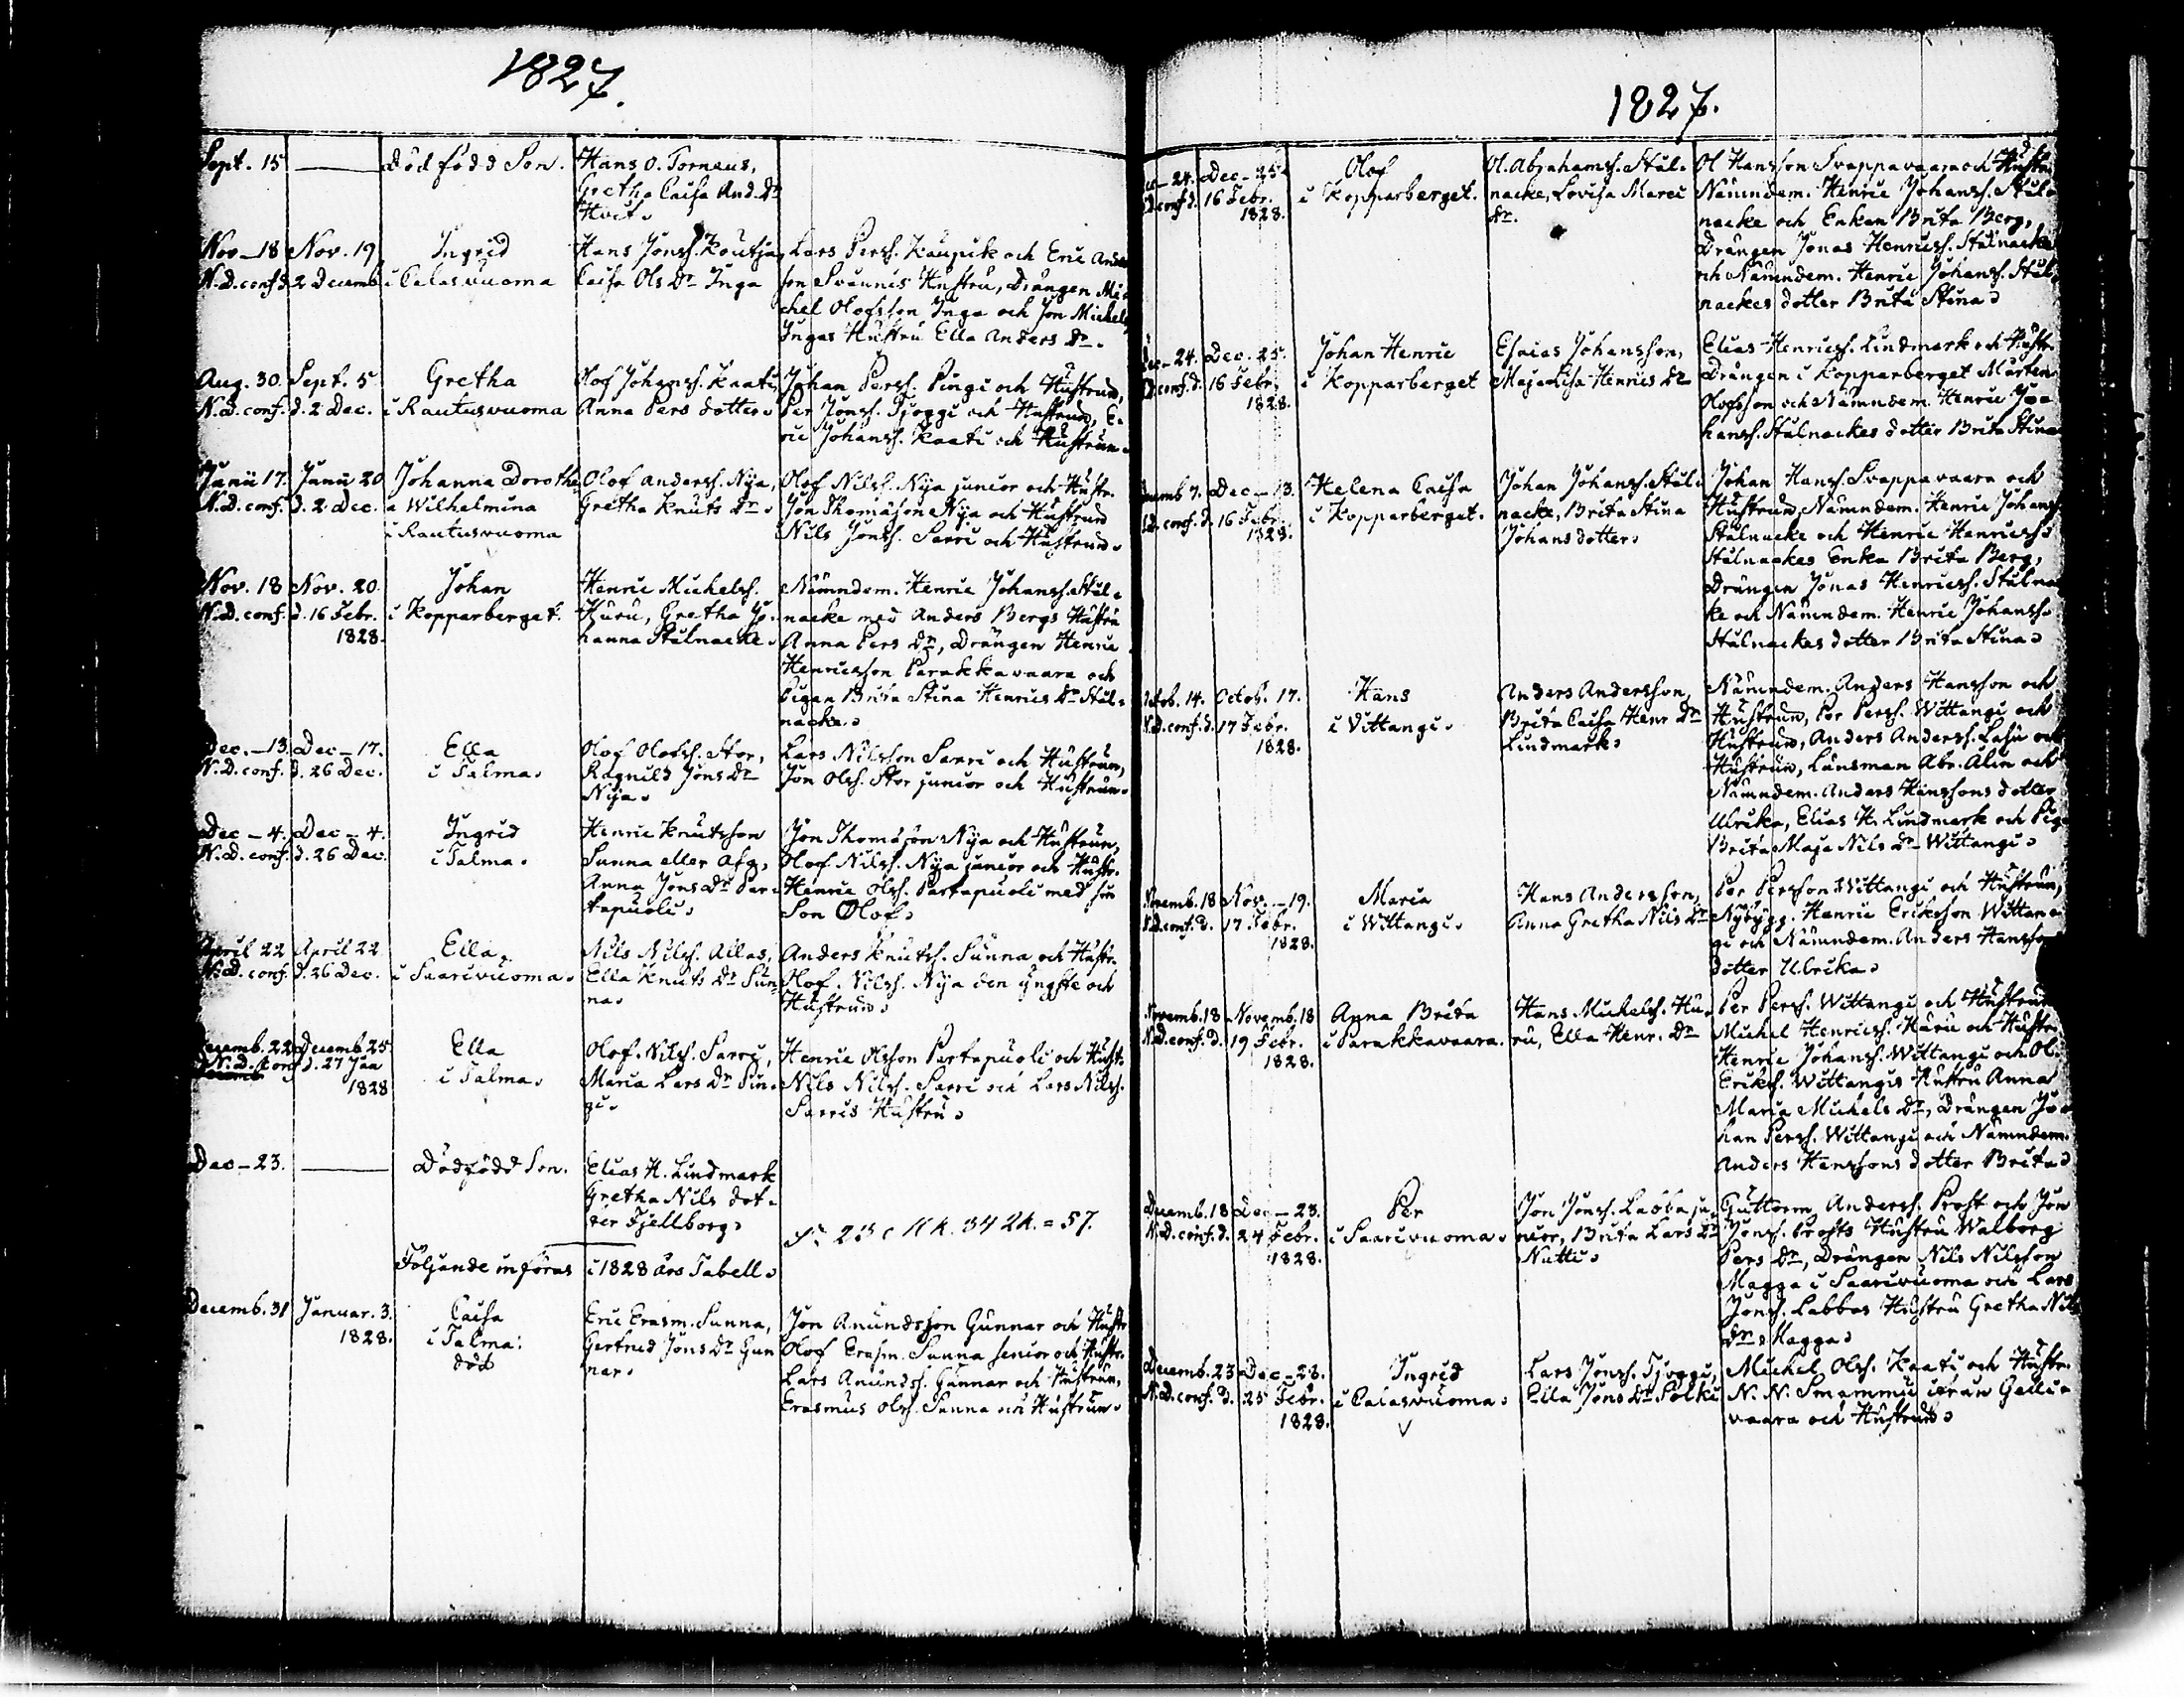 1827.
Sept. 15 — Dödfödd Son. Hans O. Torneus,
Gretha Caisa And. Dr
Hvit.
Nov. 18 Nov. 19 Ingrid Hans Jonss. Koutja, Lars Perss. Kaupik och Eric Anders
N.D. conf. d. 2 Decemb. i Calasvuoma Caisa Ols Dr Inga son Svunnis Hustru, Drängen Mi-
chel Olofsson Inga och Jon Michels
Ingas Hustru Ella Anders Dr.
Aug. 30. Sept. 5 Gretha Olof Johanss. Kaati, Johan Perss. Pingi och Hustrun,
N.D. conf. d. 2 Dec. i Rautusvuoma Anna Pers dotter. Per Jonss. Tjoggi och Hustrun, E-
ric Johanss. Kaati och Hustrun.
Junii 17. Junii 20 Johanna Dorothe Olof Anderss. Nya, Olof Nilss. Nya junior och Hustr.
N.D. conf. d. 2 Dec. a Wilhelmina Gretha Knuts Dr. Jon Thomason Nya och Hustrun
i Rautusvuoma Nils Jonss. Sarri och Hustrun.
Nov. 18 Nov. 20. Johan Henric Michelss. Nämndem. Henric Johanss. Stål-
N.D. conf. d. 16 Febr. i Kopparberget. Huru, Gretha Jo- nacke med Anders Bergs Hustru
1828. hanna Stålnacke. Anna Pers Dr, Drängen Henric
Henricsson Parakkavaara och
Pigan Brita Stina Henrics Dr Stål-
nacke.
Dec. 13. Dec. 17. Ella Olof Olofss. Stor, Lars Nilsson Sarri och Hustrun,
N.D. conf. d. 26 Dec. i Talma. Ragnild Jons Dr Jon Olss. Stor junior och Hustrun.
Nya.
Dec. 4. Dec. 4. Ingrid Henric Knutsson Jon Thomason Nya och Hustrun,
N.D. conf. d. 26 Dec. i Talma. Sunna eller Afg, Olof Nilss. Nya junior och Hustr.
Anna Jons Dr Par- Henric Olss. Partapuoli med sin
tapuoli. Son Olof.
April 22 April 22 Ella, Nils Nilss. Allas, Anders Knutss. Sunna och Hustr.
N.D. conf. d. 26 Dec. i Saarivuoma. Ella Knuts Dr Sun- Olof Nilss. Nya den yngste och
na. Hustrun.
Decemb. 22 Decemb. 25 Ella Olof Nilss. Sarri, Henric Olsson Partapuoli och Hust.
N.D. conf. d. 27 Jan i Talma. Maria Lars Dr Pin- Nils Nilss. Sarri och Lars Nilss.
1828 gi. Sarris Hustru.
Dec. 23. — Dödfödd Son. Elias H. Lindmark
Gretha Nils dot-
ter Fjellborg.
23 MK. 34 QK. = 57.
Följande införas i 1828 års Tabell.
Decemb. 31 Januar. 3. Caisa Eric Erasm. Sunna, Jon Anundsson Gunnar och Hustr.
1828. i Talma: Gertrud Jons Dr Gun Olof Erasm. Sunna senior och Hustr.
död nar. Lars Anundss. Gunnar och Hustrun,
Erasmus Olss. Sunna och Hustrun.
1827.
Dec. 24. Dec. 25. Olof Ol. Abrahamss. Stål- Ol. Hansson Svappavaara och Hustru
N.D. conf. d. 16 Febr. i Kopparberget. nacke, Lovisa Marci Nämndem. Henric Johanss. Stål-
1828. dr. nacke och Enkan Brita Berg,
Drängen Jonas Henricss. Stålnacke
och Nämndem. Henric Johanss. Stål-
nackes dotter Brita Stina.
Dec. 24. Dec. 25. Johan Henric Esaias Johansson, Elias Henricss. Lindmark och Hustr.
N.D. conf. d. 16 Febr. i Kopparberget Maja Lisa Henrics Dr Drängen i Kopparberget Mårten
1828. Olofsson och Nämndem. Henric Jo-
hanss. Stålnackes dotter Brita Stina
Decemb. 7. Dec. 13. Helena Caisa Johan Johanss. Stål- Johan Hanss. Svappavaara och
N.D. conf. d. 16 Febr. i Kopparberget. nacke, Brita Stina Hustrun, Nämndem. Henric Johanss.
1828. Johans dotter. Stålnacke och Henric Henricss.
Stålnackes Enka Brita Berg,
Drängen Jonas Henricss. Stålnac
ke och Nämndem. Henric Johanss.
Stålnackes dotter Brita Stina.
Octob. 14. Octob. 17. Hans Anders Andersson, Nämndem. Anders Hansson och
N.D. conf. d. 17 Febr. i Vittangi. Brita Caisa Henr Dr Hustrun, Per Perss. Wittangi och
1828. Lindmark. Hustrun, Anders Anderss. Lasu och
Hustrun, Länsman Abr. Alin och
Nämndem. Anders Hanssons dotter
Ulrika, Elias H. Lindmark och Piga
Brita Maja Nils Dr Wittangi.
Novemb. 18 Nov. 19. Maria Hans Andersson, Per Persson Wittangi och Hustrun,
N.D. conf. d. 17 Febr. i Wittangi. Anna Gretha Nils Dr Nybygg. Henric Ericsson Wittan-
1828. gi och Nämndem. Anders Hansson
dotter Ulrika.
Novemb. 18 Novemb. 18 Anna Brita Hans Michelss. Hu- Per Perss. Wittangi och Hustrun
N.D. conf. d. 19 Febr. i Parakkavaara. ru, Ella Henr. Dr Michel Henricss. Huru och Hustr.
1828. Henric Johanss. Wittangi och Ol.
Eriks. Wittangis Hustru Anna
Maria Michels Dr, Drängen Jo-
han Perss. Wittangi och Nämndem.
Anders Hanssons dotter Brita.
Decemb. 18 Dec. 23. Per Jon Jonss. Labba ju- Guttorm Anderss. Prost och Jon
N.D. conf. d. 24 Febr. i Saarivuoma. nior, Brita Lars Dr Jonss. Prosts Hustru Walborg
1828. Nutti. Pers Dr, Drängen Nils Nilsson
Magga i Saarivuoma och Lars
Jonss. Labbas Hustru Gretha Nils
Dr Magga.
Decemb. 23 Dec. 28. Ingrid Lars Jonss. Tjoggi, Michel Olss. Kaati och Hustr.
N.D. conf. d. 25 Febr. i Calasvuoma. Ella Jons Dr Polki N. N. ifrån Gelli-
1828. vaara och Hustrun.